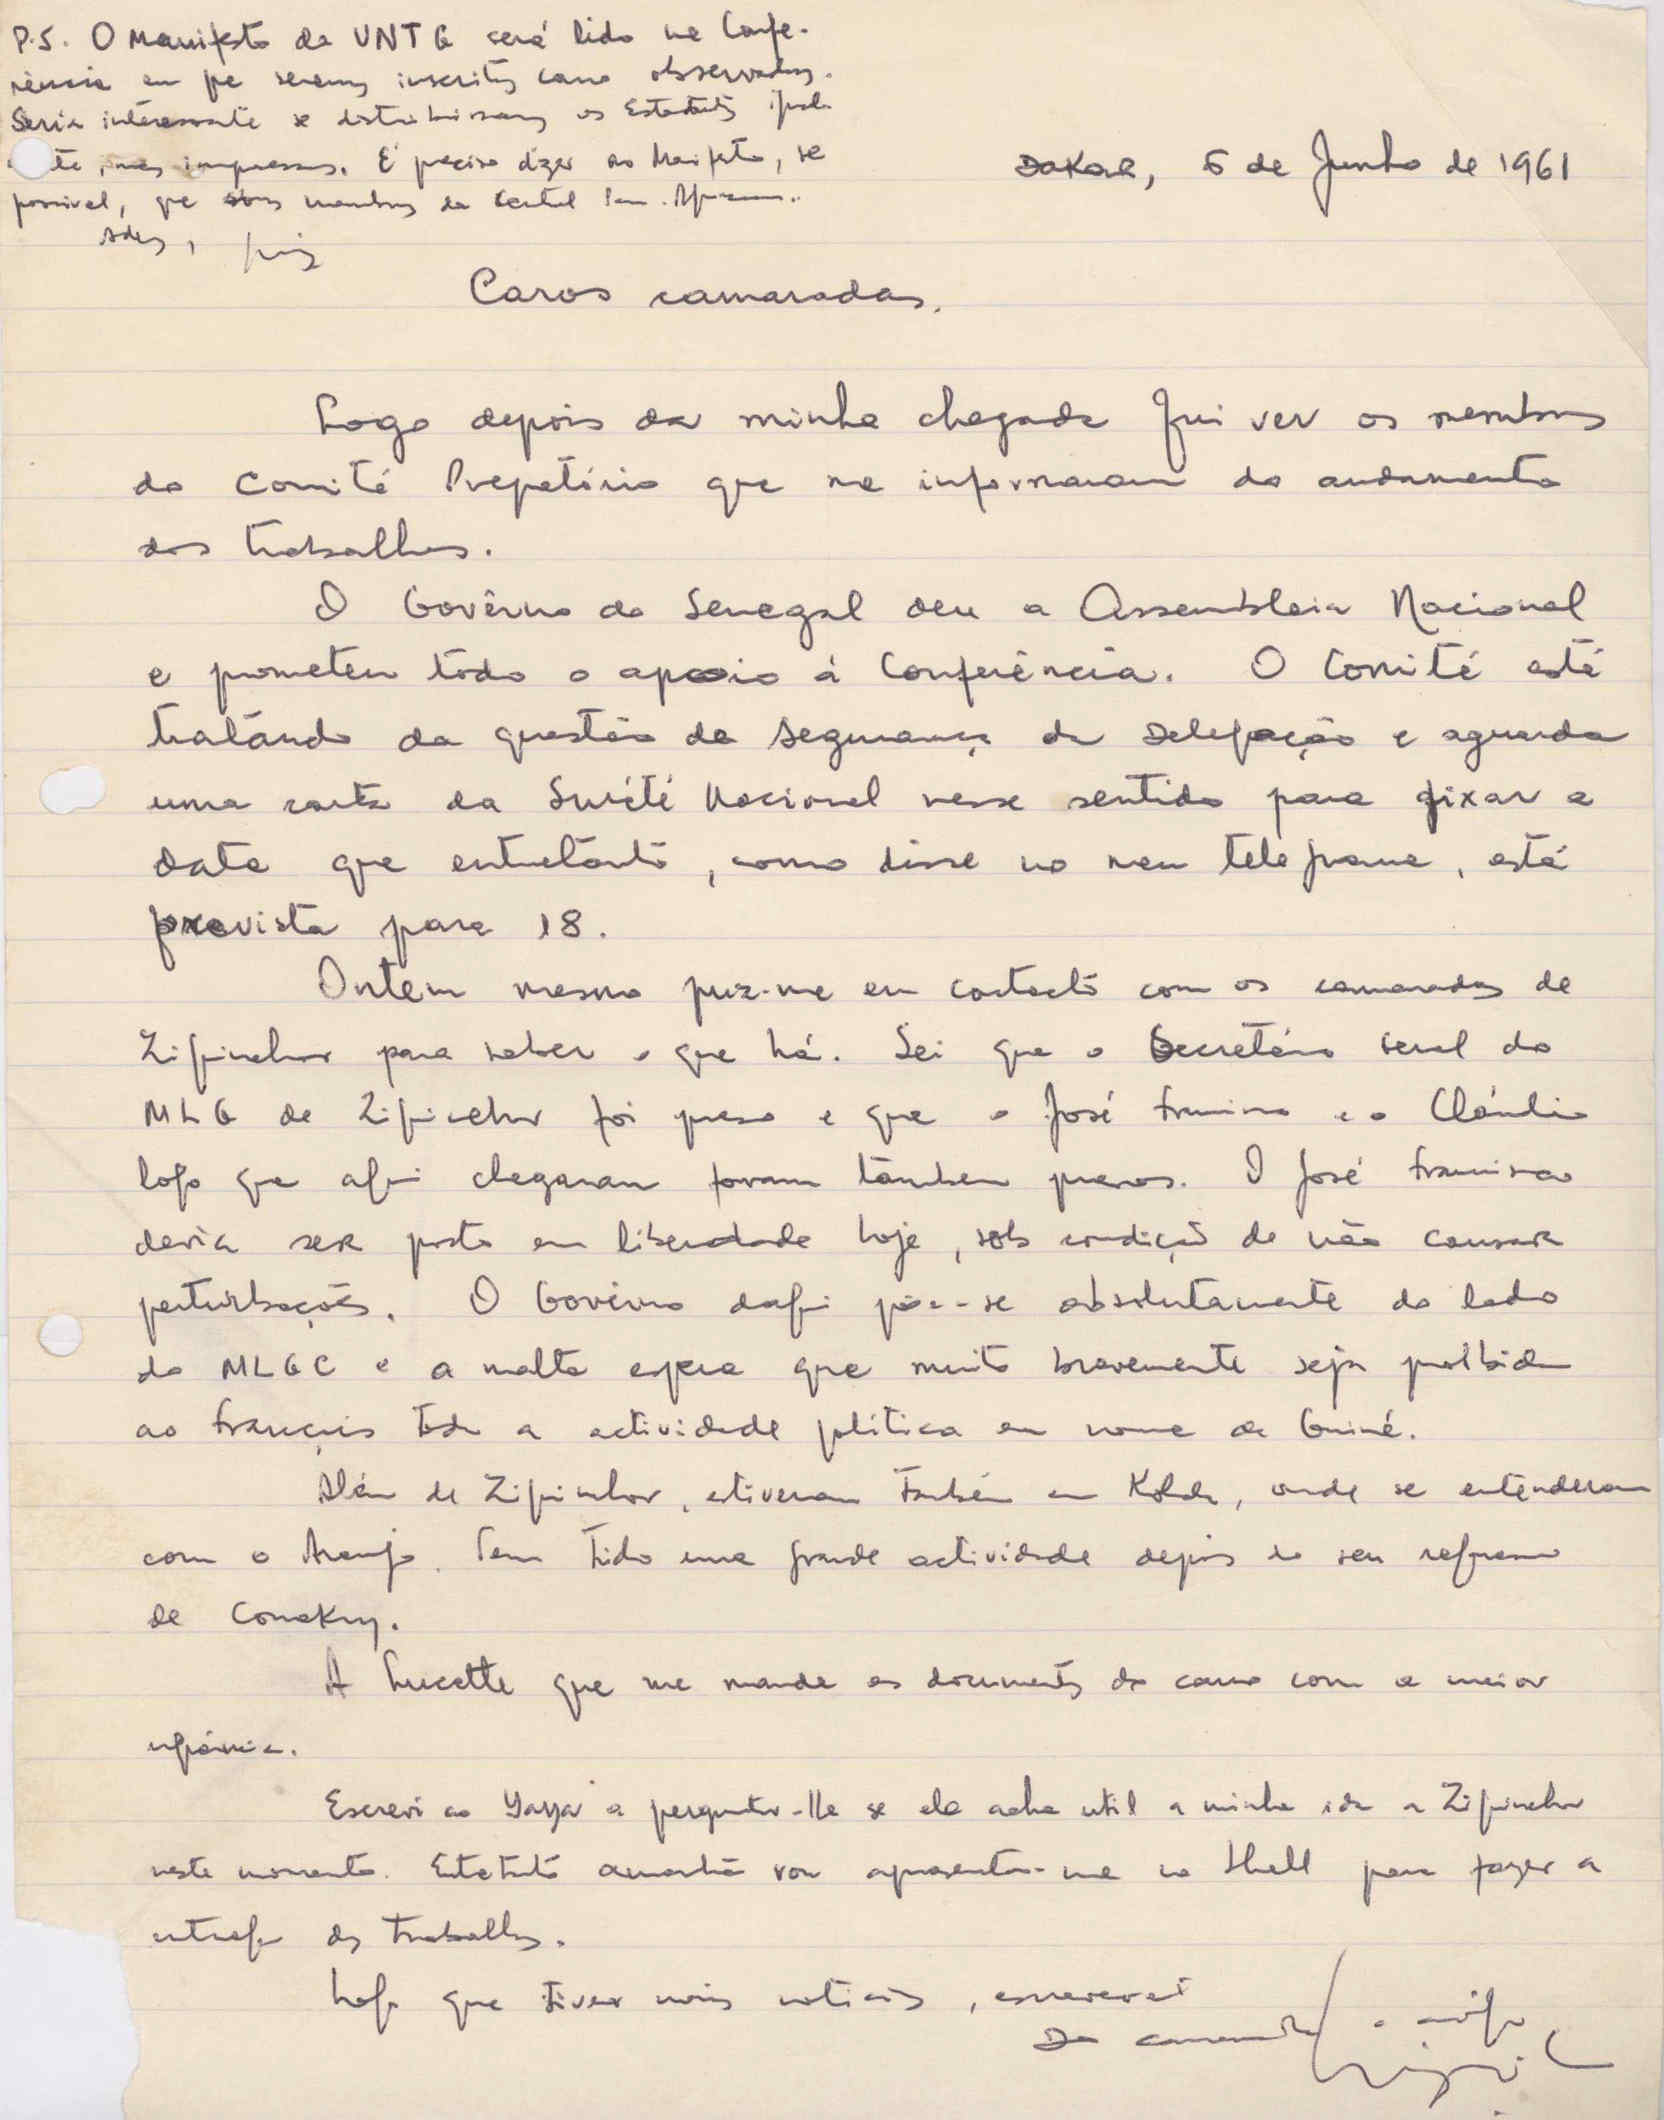 P.S. O Manifesto da UNTG será lido na Confe-
rência em que seremos inscritos como observadores.
Seria interessante se distribuissem os Estatutos igual-
te, mas impressos. É preciso dizer no Manifesto, se
possível, que somos membros da Central Pan-Africana..
Adeus, Luiz
Dakar, 6 de Junho de 1961
Caros camaradas,
Logo depois da minha chegada fui ver os membros
do Comité Prepatório que me informaram do andamento
dos trabalhos.
O Govêrno do Senegal deu a Assembleia Nacional
e prometeu todo o apoio à Conferência. O Comité está
tratando da questão da segurança da Delegação e aguarda
uma carta da Sûreté Nacional nesse sentido para fixar a
data que entretanto, como disse no meu telegrama, está
prevista para 18.
Ontem mesmo puz-me em contacto com os camaradas de
Ziguinchor para saber o que há. Sei que o Secretário Geral do
MLG de Ziguinchor foi preso e que o José Francisco e o Cláudio
logo que aqui chegaram foram também presos. O José Francisco
devia ser posto em liberdade hoje, sob condição de não causar
perturbações. O Govêrno daqui pôs-se absolutamente do lado
do MLGC e a malta espera que muito brevemente seja proibida
ao François toda a actividade política em nome da Guiné.
Além de Ziguinchor, estiveram também em Kolda, onde se entenderam
com o Araujo. Tem tido uma grande actividade depois do seu regresso
de Conakry.
A Lucette que me mande os documentos do carro com a maior
urgência.
Escrevi ao Yaya a perguntar-lhe se ele acha util a minha ida a Ziguinchor
neste momento. Entretanto amanhã vou apresentar-me na Shell para fazer a
entrega dos trabalhos.
Logo que tiver mais noticias, escreverei
Do camarada e amigo